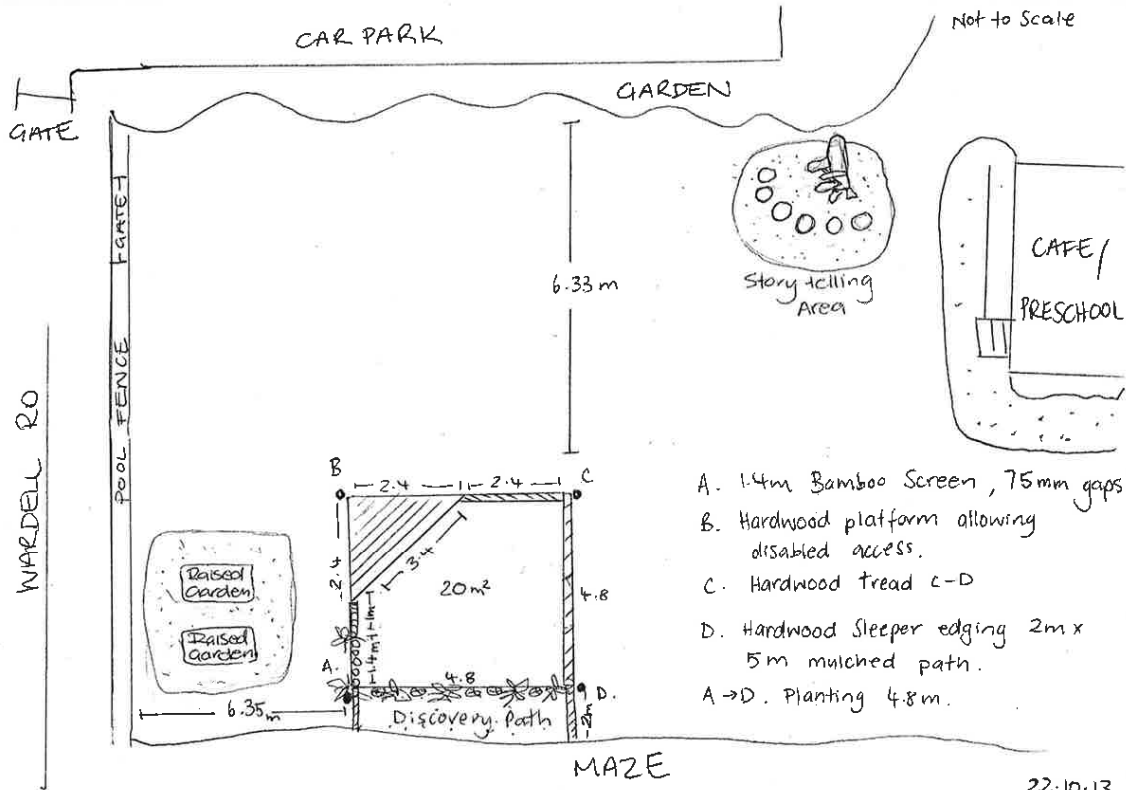 Not to Scale
CAR PARK
GARDEN
GATE
GATE
POOL FENCE
WARDELL RD
6.33m
Story telling
Area
CAFE/
PRESCHOOL
B
2.4
2.4
C
2.4
3.4
20m²
4.8
Raised
Garden
Raised
Garden
1.4m
1m
A.
4.8
D.
6.35m
Discovery Path
2m
MAZE
A. 1.4m Bamboo Screen, 75mm gaps
B. Hardwood platform allowing
disabled access.
C. Hardwood tread C-D
D. Hardwood Sleeper edging 2m x
5m mulched path.
A→D. Planting 4.8m.
22.10.13